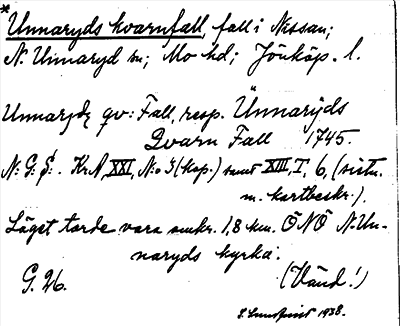 * Unnaryds kvarnfall, fall i Nissan;
N. Unnaryd sn; Mo hd; Jönköp. l.
Unnarydz qv: Fall, resp. Ünnarÿds
Qvarn Fall 1745.
N: G: S: . Kr. A, XXI, N:o 3 (kop.) samt XIII, I, 6, (sistn.
m. kartbeskr.).
Läget torde vara omkr. 1,8 km. ÖNÖ N. Un-
naryds kyrka.
G. 26.
(Vänd!)
E. Lundqvist 1938.